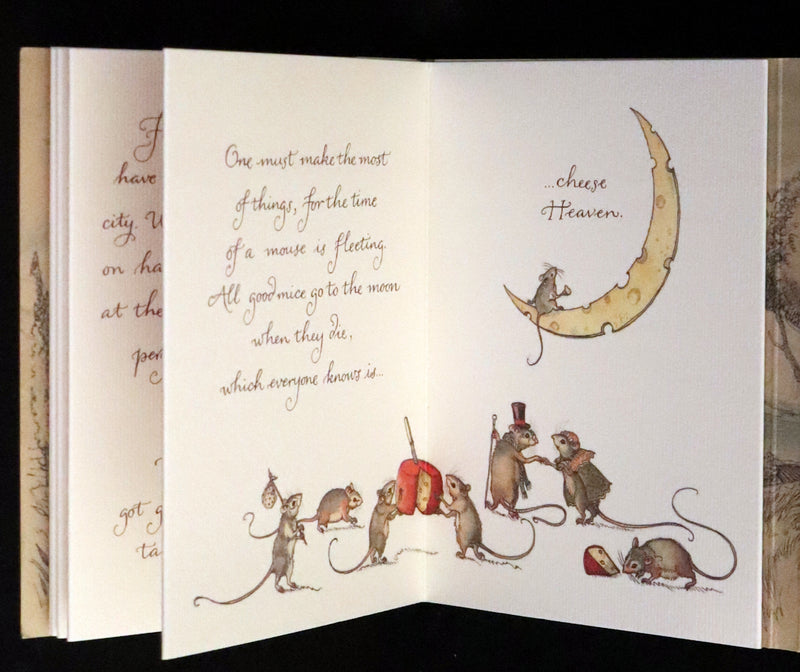 have
city.
on
at the
got
One must make the most
of things, for the time
of a mouse is fleeting.
All good mice go to the moon
when they die,
which everyone knows is...
...cheese
Heaven.